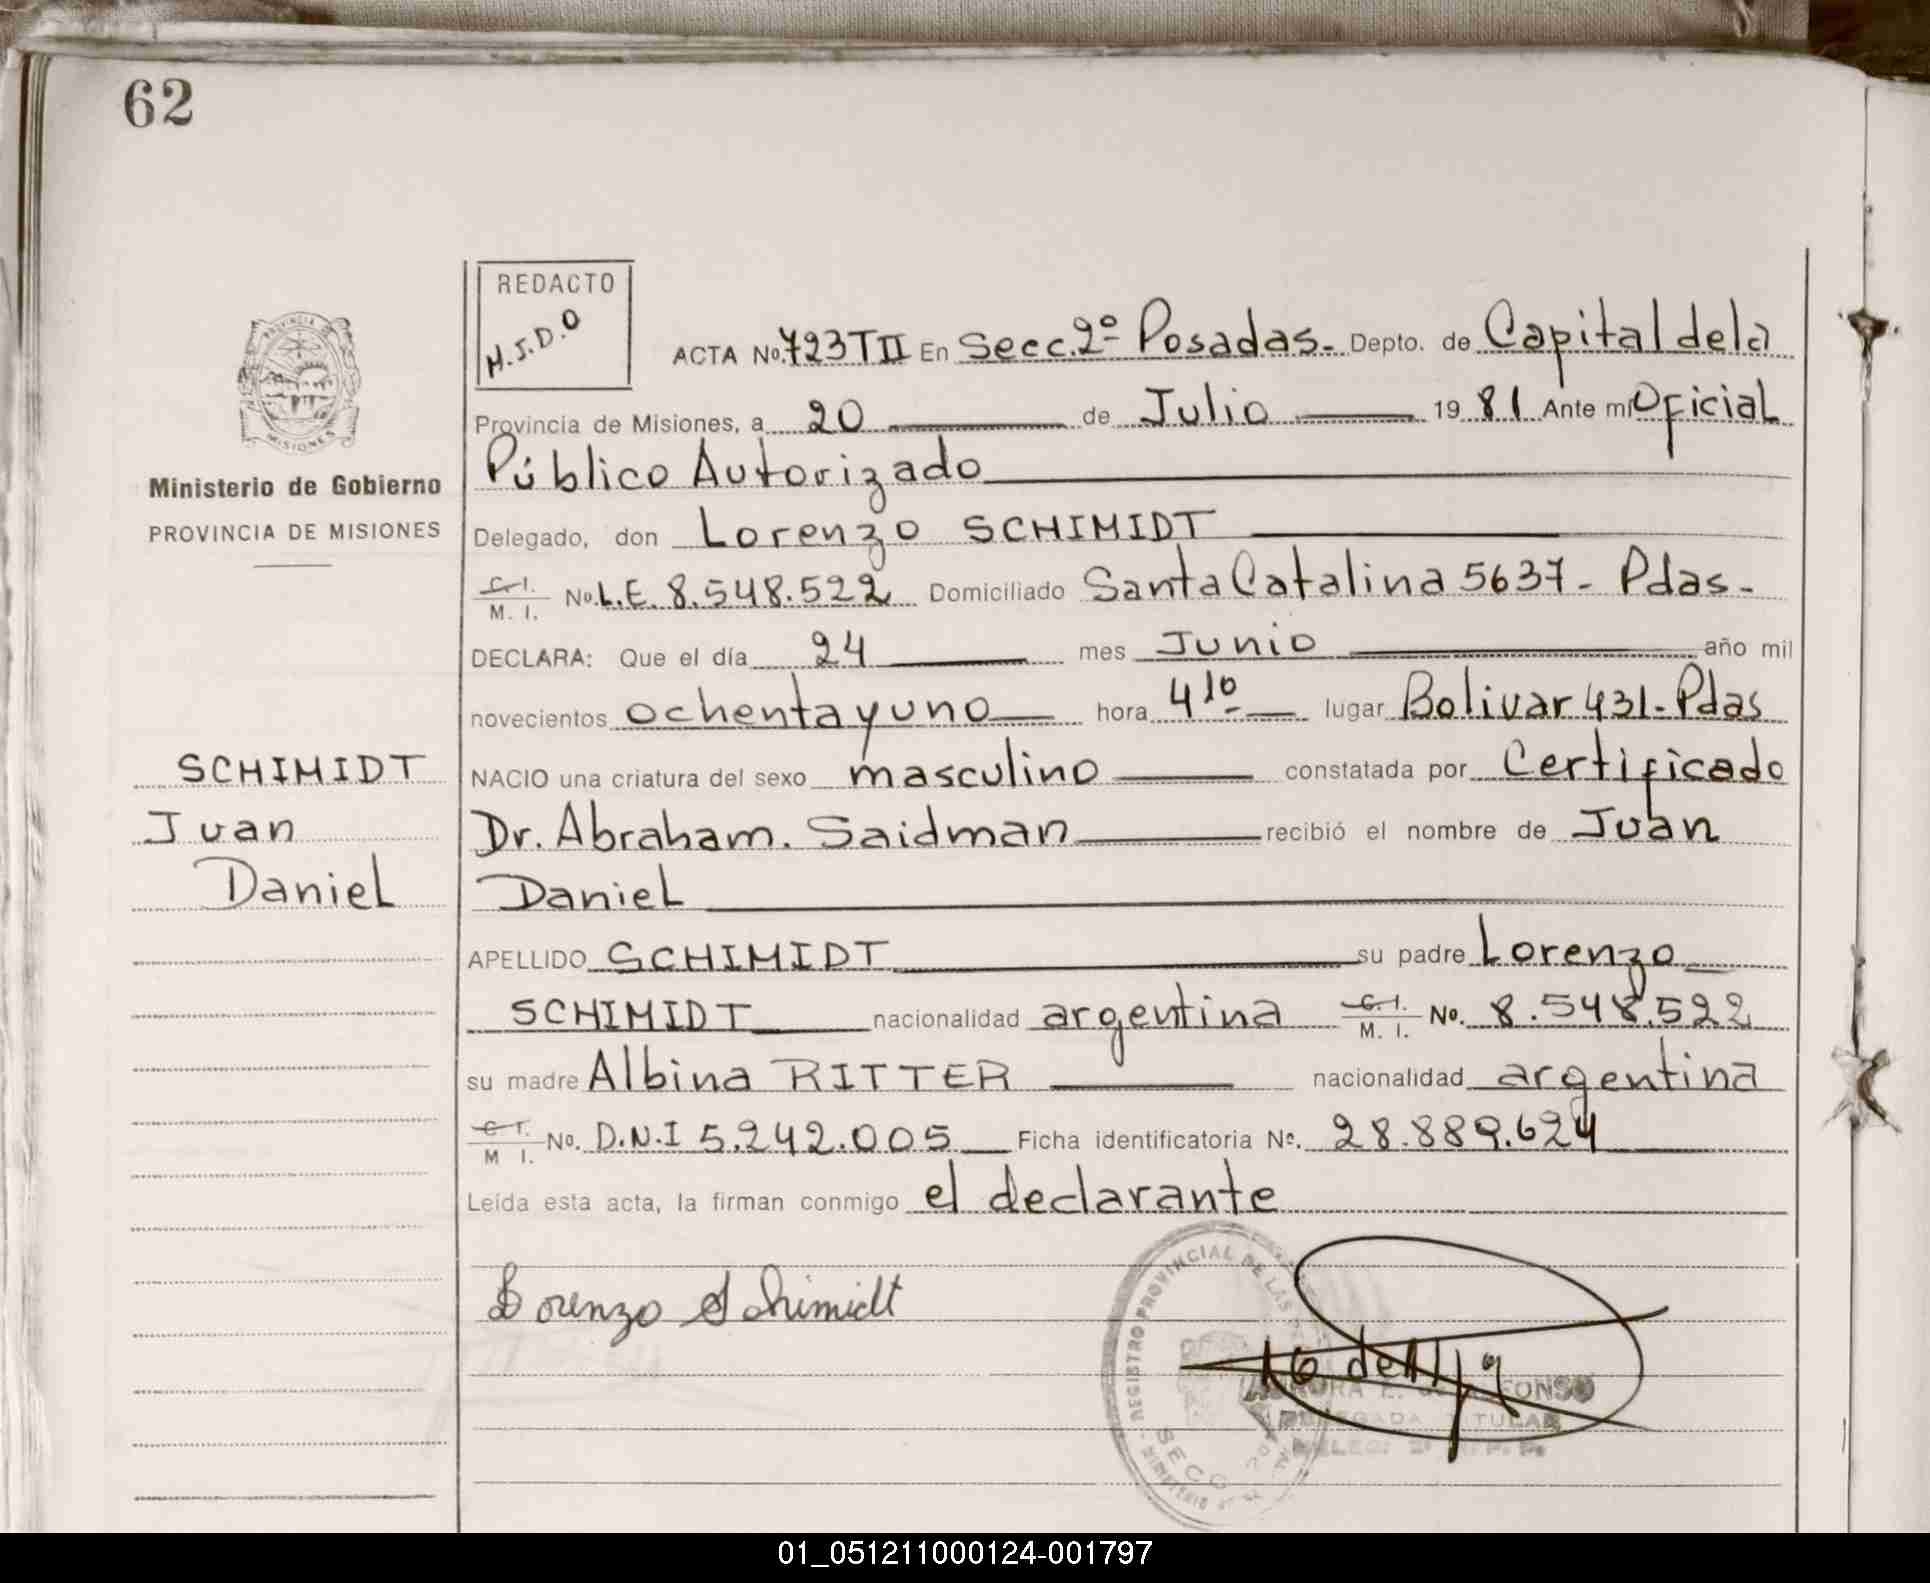 62
REDACTO
H.J.D.O
PROVINCIA DE
MISIONES
Ministerio de Gobierno
PROVINCIA DE MISIONES
ACTA No. 723 T II En Secc. 2º Posadas.- Depto. de Capital de la
Provincia de Misiones, a 20 de Julio 1981 Ante mí Oficial
Público Autorizado
Delegado, don Lorenzo SCHIMIDT
C. I. / M. I. No. L.E. 8.548.522 Domiciliado Santa Catalina 5637 - Pdas-
DECLARA: Que el día 24 mes Junio año mil
novecientos ochenta y uno hora 4 10 lugar Bolivar 431- Pdas
NACIO una criatura del sexo masculino constatada por Certificado
Dr. Abraham. Saidman recibió el nombre de Juan
Daniel
SCHIMIDT
Juan
Daniel
APELLIDO SCHIMIDT su padre Lorenzo
SCHIMIDT nacionalidad argentina C. I. / M. I. No. 8.548.522
su madre Albina RITTER nacionalidad argentina
C I. / M I. No. D.N.I 5.242.005 Ficha identificatoria Nº. 28.889.624
Leída esta acta, la firman conmigo el declarante
Lorenzo Schimidt
REGISTRO PROVINCIAL DE LAS
SECC
TITULAR
01_051211000124-001797